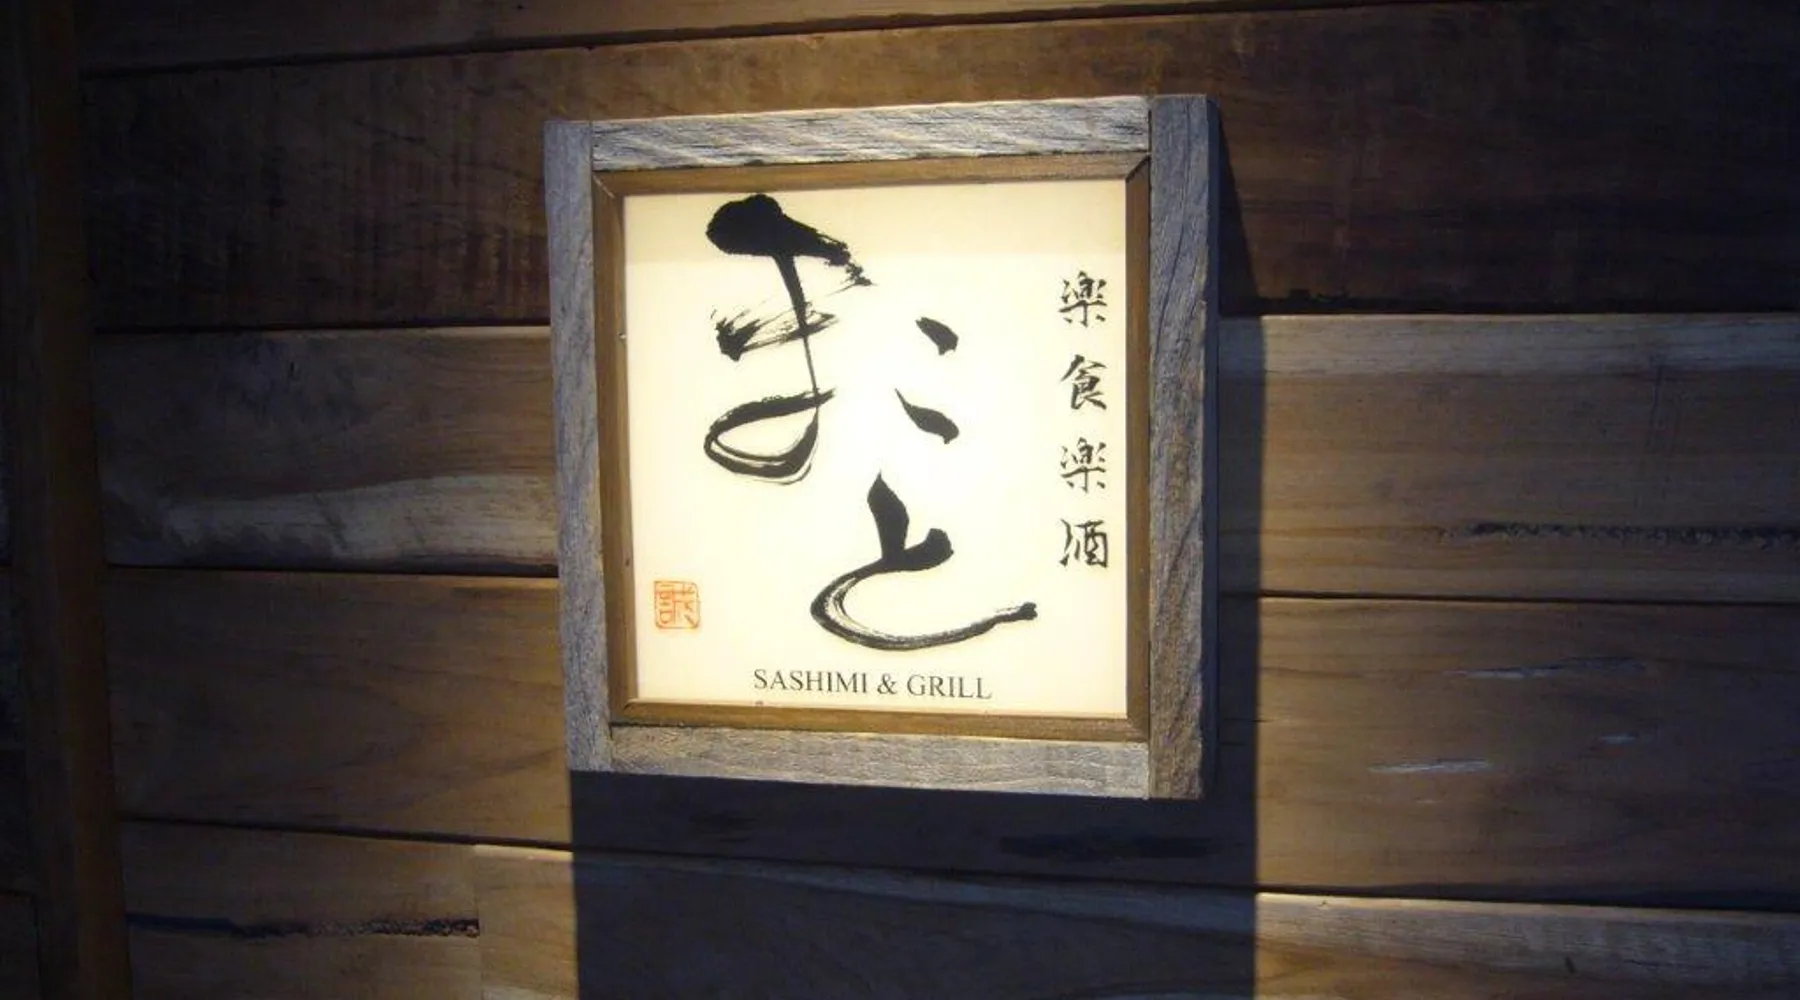 まこと
楽食楽酒
誠
SASHIMI & GRILL